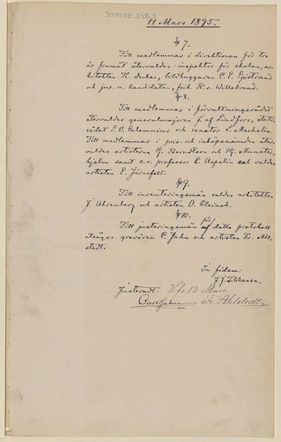 11 Mars 1895.
§ 7.
Till medlemmar i Direktionen för tre
år framåt återvaldes: inspektor för skolan, ar-
kitekten Th. Decker, bildhuggaren C. E. Sjöstrand
och jur. u. kandidaten, frih. R. v. Willebrand.
§ 8.
Till medlemmar i förvaltningsrådet
återvaldes generalmajoren J. af Lindfors, stats-
rådet S. V. Calamnius och senator L. Mechelin.
Till medlemmar i pris- och inköpsnämnden åter-
valdes artisterna G. Berndtson och Hj. Munster-
hjelm samt e.o. professor C. Aspelin och valdes
artisten E. Järnefelt.
§ 9.
Till inventeringsmän valdes arkitekten
J. Ahrenberg och artisten O. Kleineh.
§ 10.
Till justeringsmän för detta protokoll
utsågos gravören C. Jahn och artisten Fr. Ahl-
stedt.
In fidem:
J. J. Tikkanen.
Justeradt H:fors 13 Mars.
Carl Jahn Fr. Ahlstedt